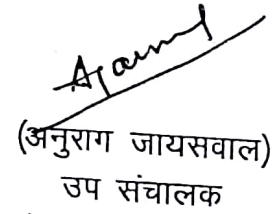 (अनुराग जायसवाल)
उप संचालक